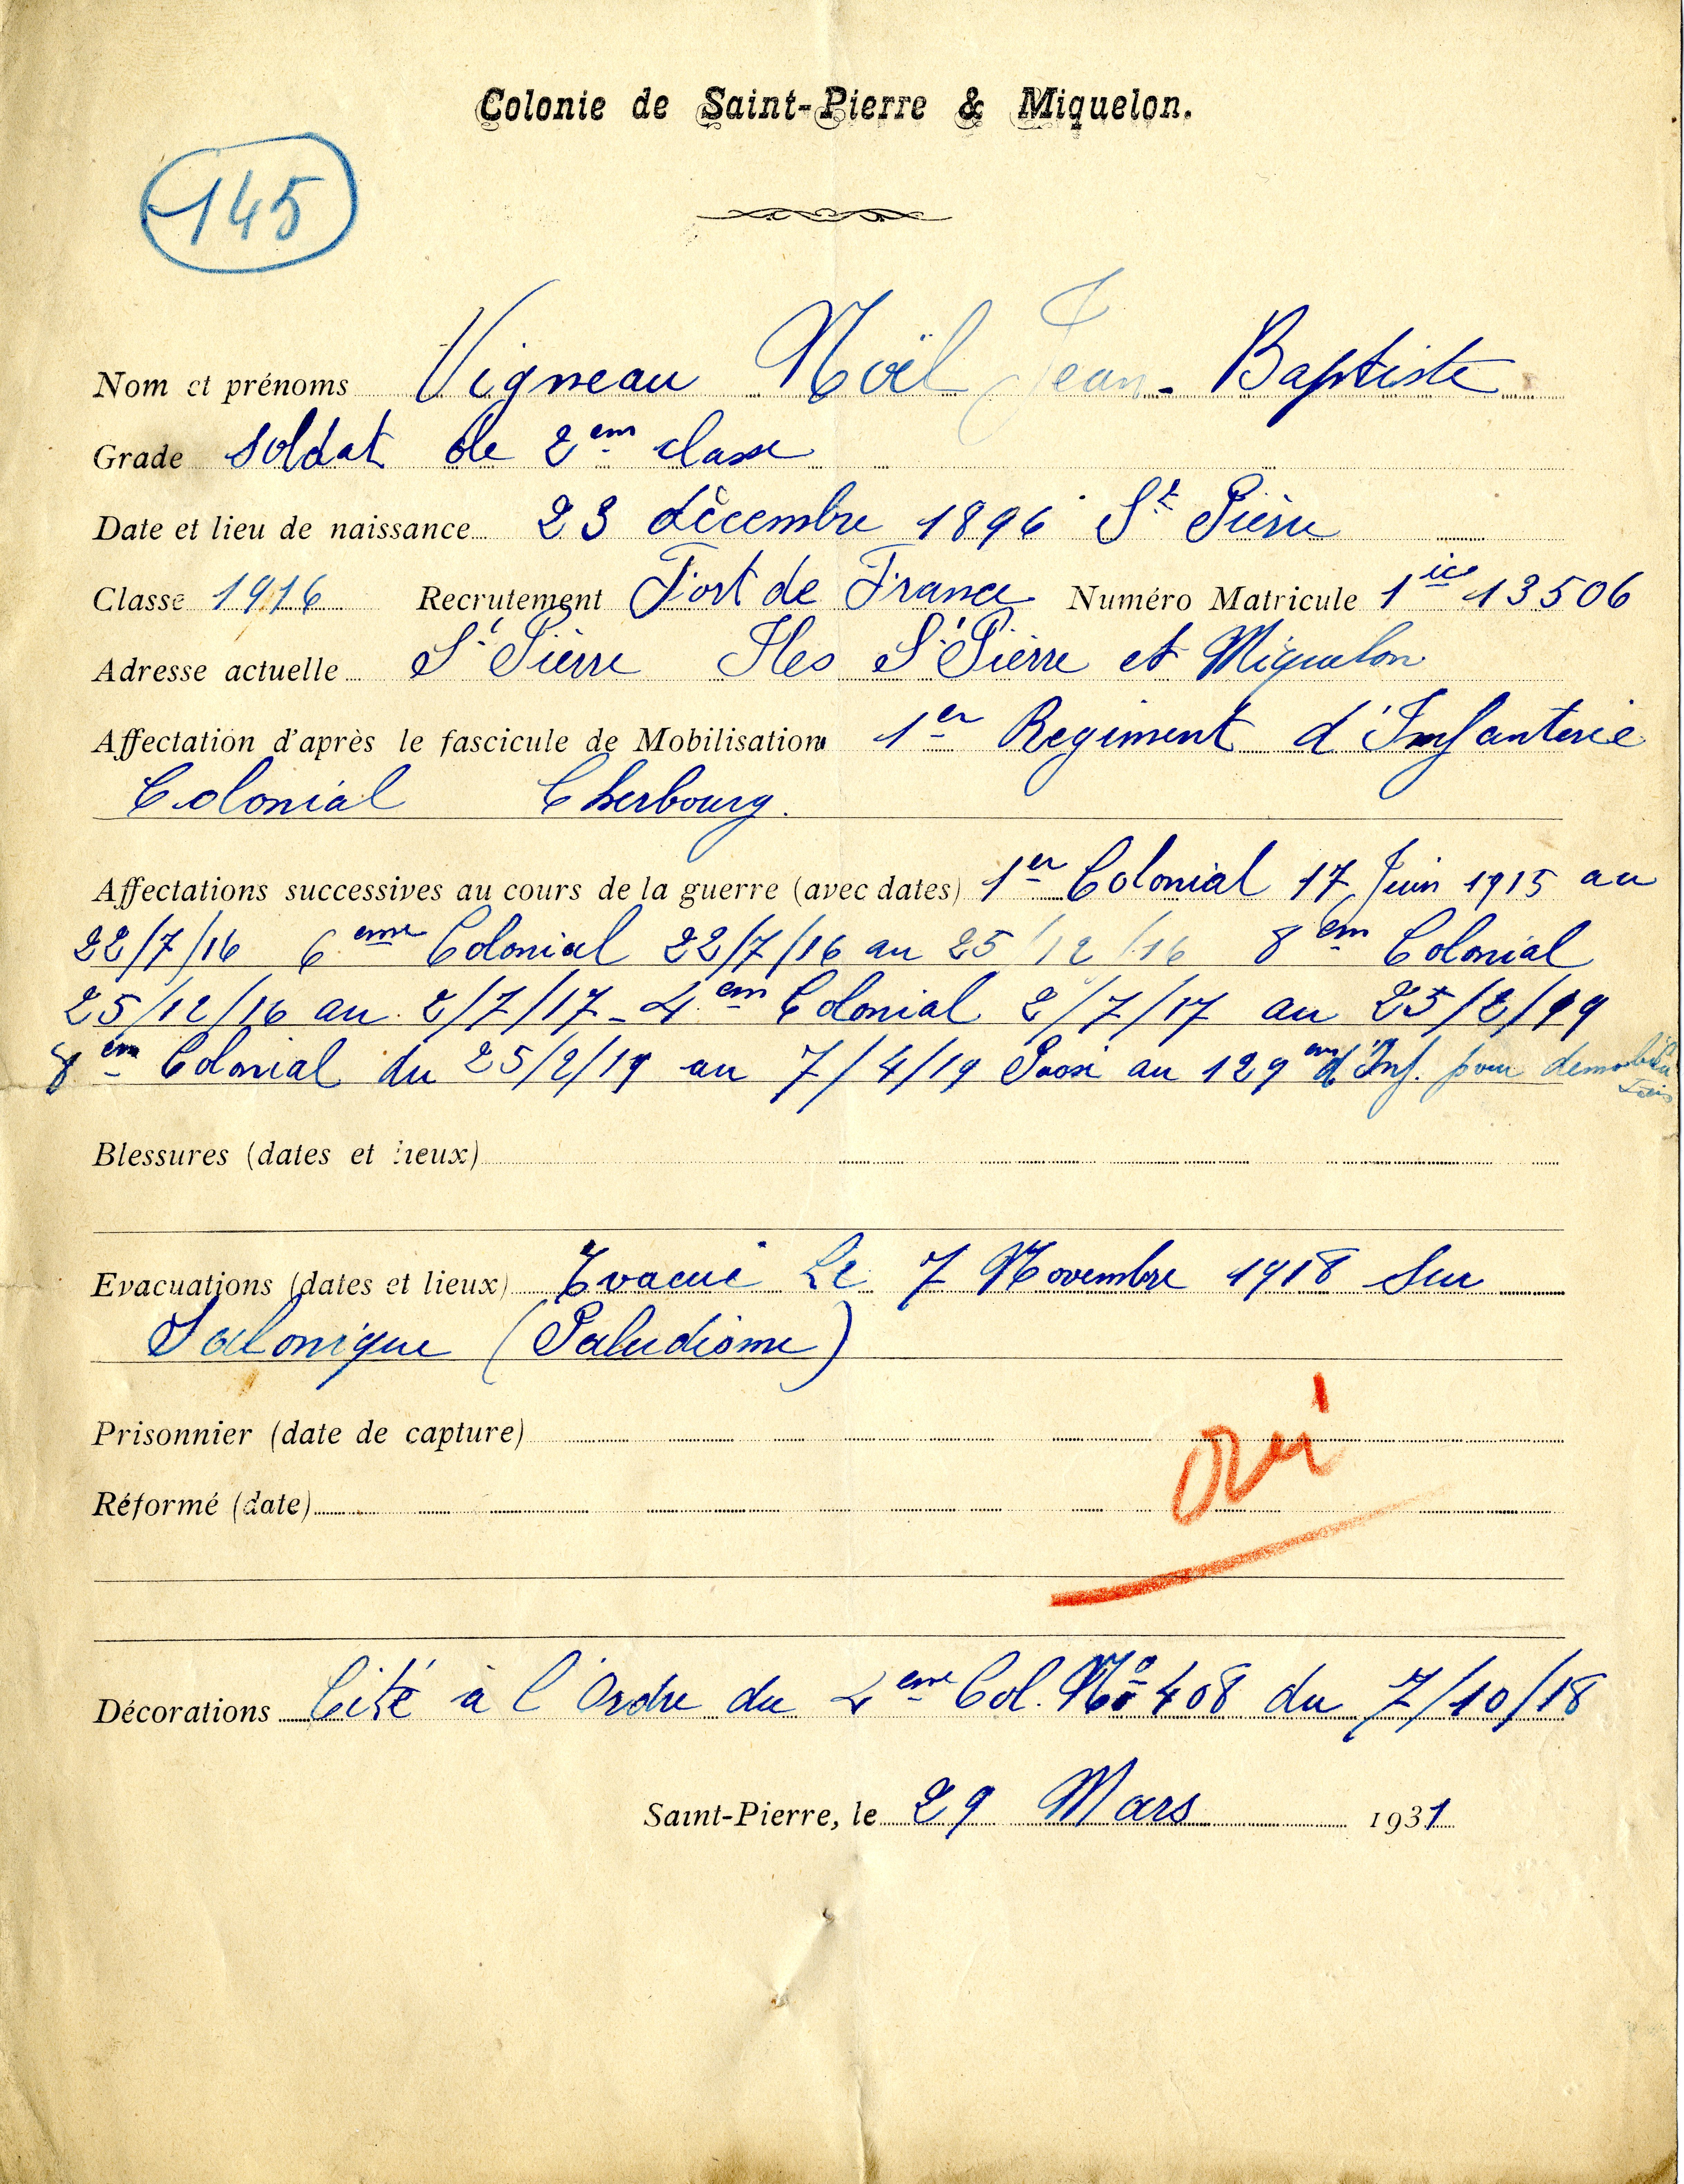 Colonie de Saint-Pierre & Miquelon.
145
Nom et prénoms Vigneau Noël Jean-Baptiste
Grade Soldat de 2em classe
Date et lieu de naissance 23 décembre 1896 St Pierre
Classe 1916 Recrutement Fort de France Numéro Matricule 1ic 13506
Adresse actuelle St Pierre Iles St Pierre et Miquelon
Affectation d'après le fascicule de Mobilisation 1er Regiment d'Infanterie
Colonial Cherbourg.
Affectations successives au cours de la guerre (avec dates) 1er Colonial 17 Juin 1915 au
22/7/16 6eme Colonial 22/7/16 au 25/12/16 8em Colonial
25/12/16 au 2/7/17 - 4em Colonial 2/7/17 au 25/2/19
8em Colonial du 25/2/19 au 7/4/19 Passé au 129em d'Inf. pour
Blessures (dates et lieux)
Evacuations (dates et lieux) Evacué Le 7 Novembre 1918 Sur
Salonique (Paludisme)
Prisonnier (date de capture)
oui
Réformé (date)
Décorations Cité à l'Ordre du 4eme Col. No 408 du 7/10/18
Saint-Pierre, le 29 Mars 1931